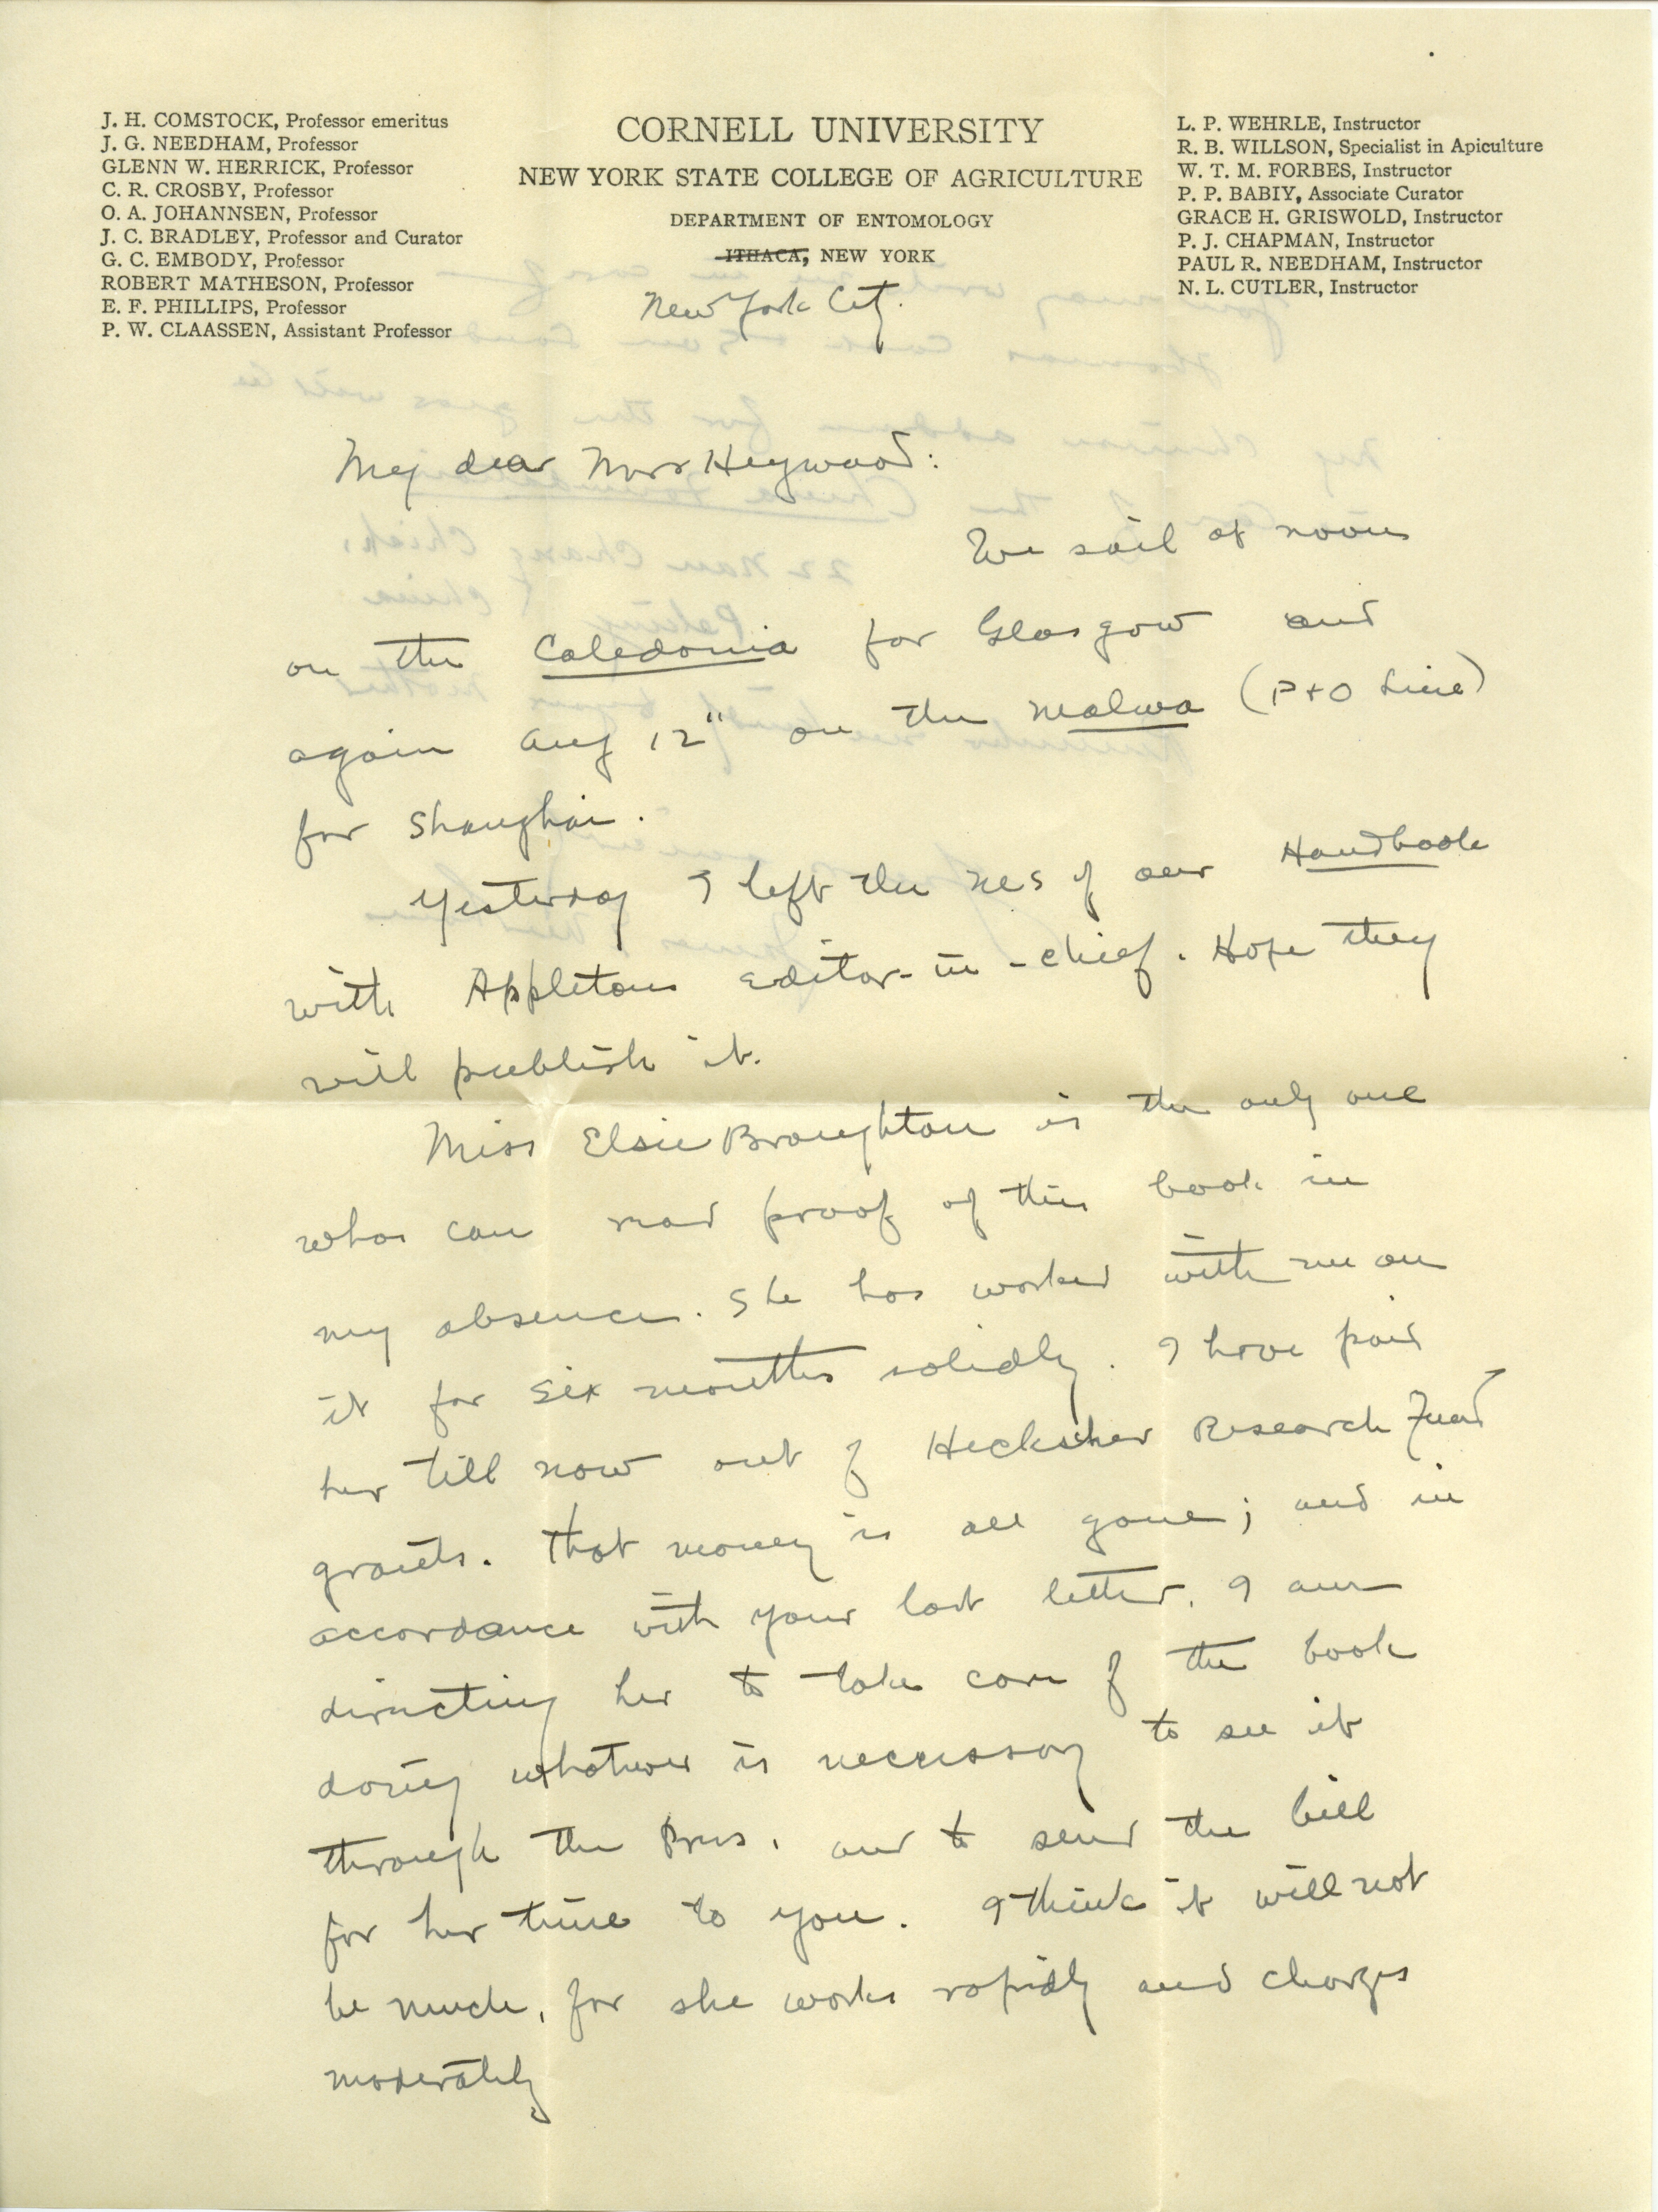 J. H. COMSTOCK, Professor emeritus
J. G. NEEDHAM, Professor
GLENN W. HERRICK, Professor
C. R. CROSBY, Professor
O. A. JOHANNSEN, Professor
J. C. BRADLEY, Professor and Curator
G. C. EMBODY, Professor
ROBERT MATHESON, Professor
E. F. PHILLIPS, Professor
P. W. CLAASSEN, Assistant Professor
CORNELL UNIVERSITY
NEW YORK STATE COLLEGE OF AGRICULTURE
DEPARTMENT OF ENTOMOLOGY
ITHACA, NEW YORK
New York City.
L. P. WEHRLE, Instructor
R. B. WILLSON, Specialist in Apiculture
W. T. M. FORBES, Instructor
P. P. BABIY, Associate Curator
GRACE H. GRISWOLD, Instructor
P. J. CHAPMAN, Instructor
PAUL R. NEEDHAM, Instructor
N. L. CUTLER, Instructor
My dear Mrs Heywood:
We sail at noon
on the Caledonia for Glasgow and
again Aug 12" on the Malwa (P+O Line)
for Shanghai.
Yesterday I left the MS of our Handbook
with Appletons editor-in-chief. Hope they
will publish it.
Miss Elsie Broughton is the only one
who can read proof of this book in
my absence. She has worked with me on
it for six months solidly. I have paid
her till now out of Heckscher Research Fund
grants. That money is all gone; and in
accordance with your last letter, I am
directing her to take care of the book
doing whatever is necessary to see it
through the Press, and to send the bill
for her time to you. I think it will not
be much, for she works rapidly and charges
moderately